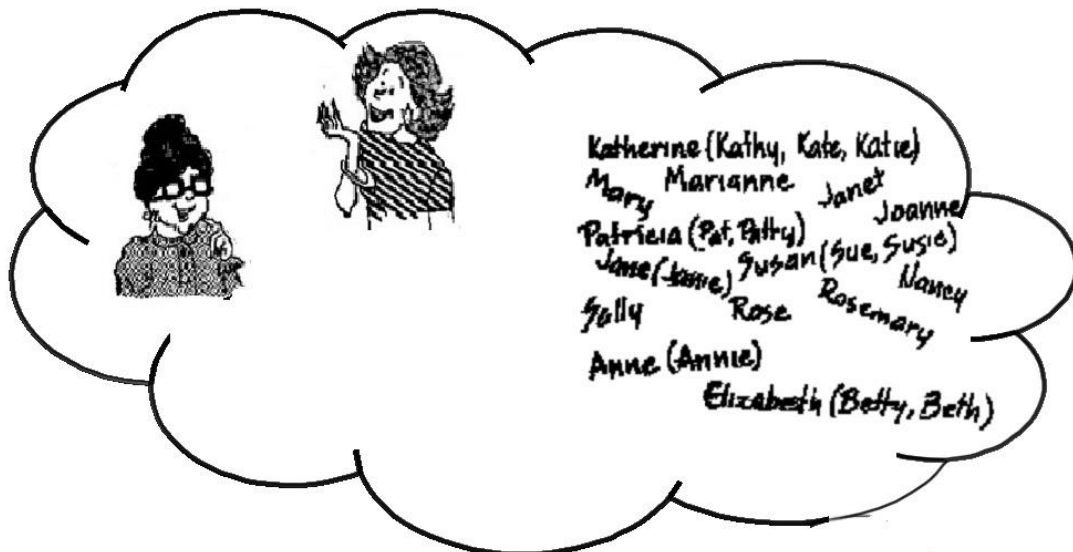 Katherine (Kathy, Kate, Katie)
Mary Marianne Janet
Joanne
Patricia (Pat, Patty)
Jane (Janie) Susan (Sue, Susie)
Nancy
Sally Rose Rosemary
Anne (Annie)
Elizabeth (Betty, Beth)